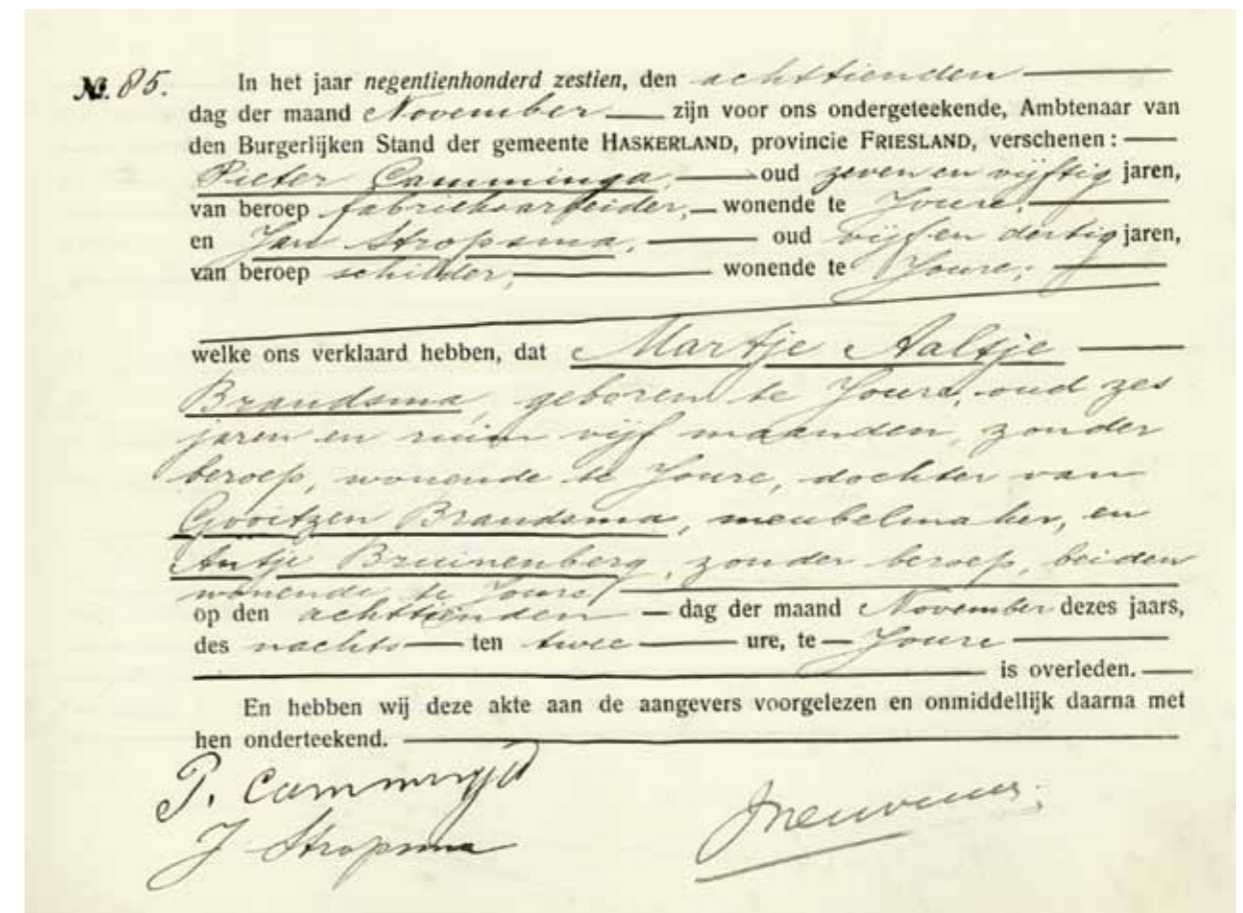 №. 85. In het jaar negentienhonderd zestien, den achttienden
dag der maand November zijn voor ons ondergeteekende, Ambtenaar van
den Burgerlijken Stand der gemeente HASKERLAND, provincie FRIESLAND, verschenen:
Pieter Camminga, oud zeven en vijftig jaren,
van beroep fabrieksarbeider, wonende te Joure,
en Jan Stropsma, oud vijf en dertig jaren,
van beroep schilder, wonende te Joure;
welke ons verklaard hebben, dat Martje Aaltje
Brandsma, geboren te Joure, oud zes
jaren en ruim vijf maanden, zonder
beroep, wonende te Joure, dochter van
Gooitzen Brandsma, meubelmaker, en
Antje Bruinenberg, zonder beroep, beiden
wonende te Joure,
op den achttienden dag der maand November dezes jaars,
des nachts ten twee ure, te Joure
is overleden.
En hebben wij deze akte aan de aangevers voorgelezen en onmiddellijk daarna met
hen onderteekend.
P. Camminga
J Stropsma